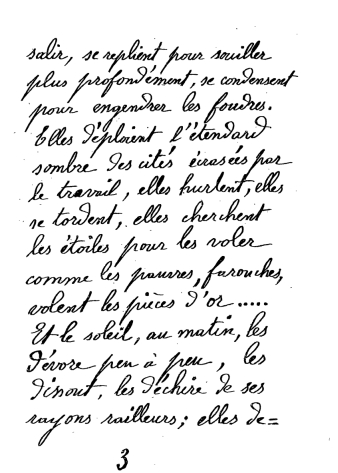 salir, se replient pour souiller
plus profondément, se condensent
pour engendrer les foudres.
Elles déploient l'étendard
sombre des cités écrasées par
le travail, elles hurlent, elles
se tordent, elles cherchent
les étoiles pour les voler
comme les pauvres, farouches,
volent les pièces d'or .....
Et le soleil, au matin, les
dévore peu à peu, les
dissout, les déchire de ses
rayons railleurs; elles de=
3